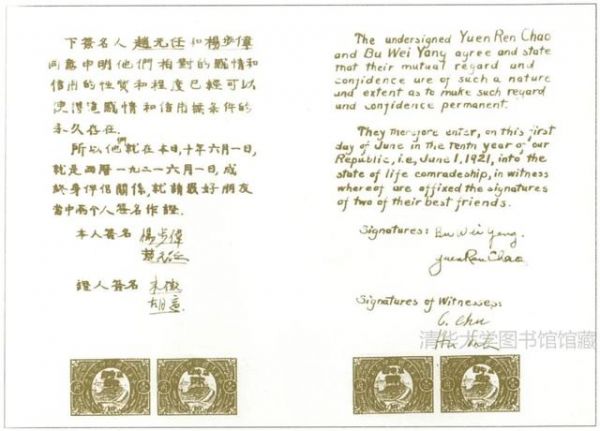 下簽名人趙元任和楊步偉
同意申明他們相對的感情和
信用的性質和程度已經可以
使得這感情和信用無條件的
永久存在.
所以他們就在本日,十年六月一日,
就是西曆一九二一六月一日,成
終身伴侶關係,就請最好朋友
當中兩个人簽名作證.
本人簽名 楊步偉
趙元任
證人簽名 朱徵
胡適
The undersigned Yuen Ren Chao
and Bu Wei Yang agree and state
that their mutual regard and
confidence are of such a nature
and extent as to make such regard
and confidence permanent.
They therefore enter, on this first
day of June in the tenth year of our
Republic, i.e, June 1, 1921, into the
state of life comradeship, in witness
whereof are affixed the signatures
of two of their best friends.
Signatures: Bu Wei Yang
Yuen Ren Chao
Signatures of Witnesses:
C. Chu
Hu
清华大学图书馆馆藏